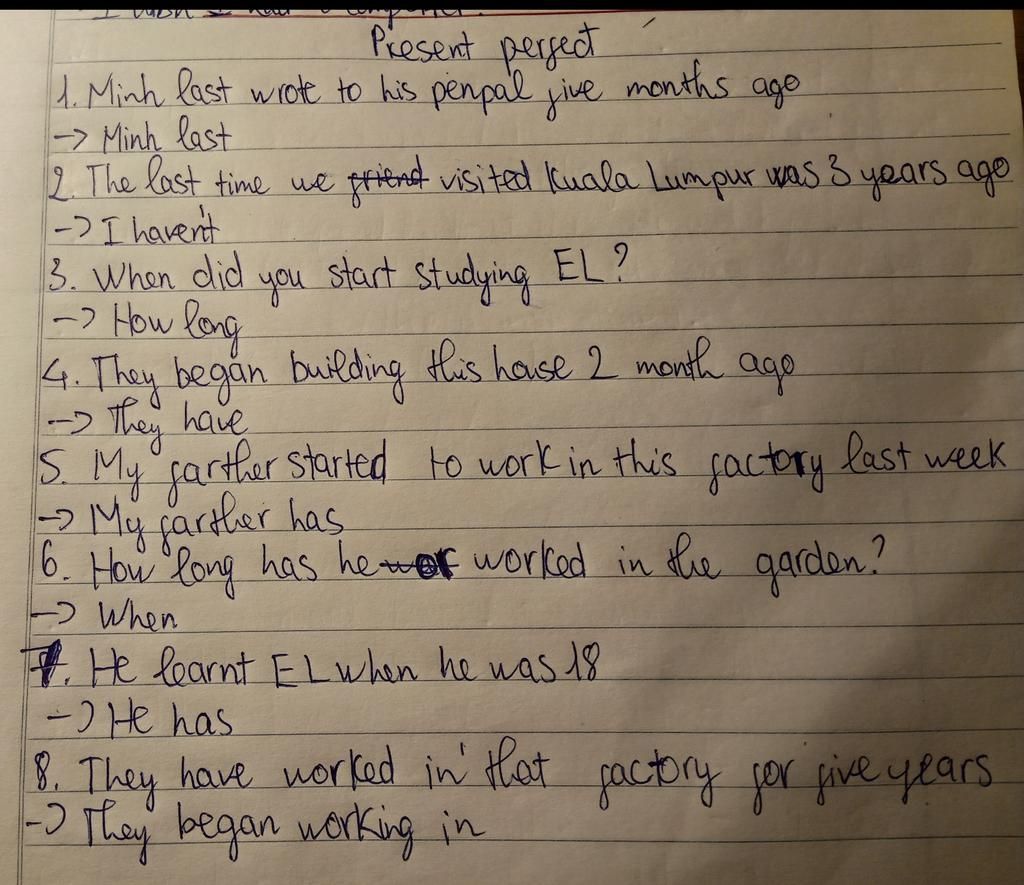 Present perfect
1. Minh last wrote to his penpal five months ago
-> Minh last
2. The last time we friend visited Kuala Lumpur was 3 years ago
-> I haven't
3. When did you start studying EL?
-> How long
4. They began building this house 2 month ago
-> They have
5. My farther started to work in this factory last week
-> My farther has
6. How long has he wor worked in the garden?
-> When
7. He learnt EL when he was 18
-> He has
8. They have worked in that factory for five years
-> They began working in